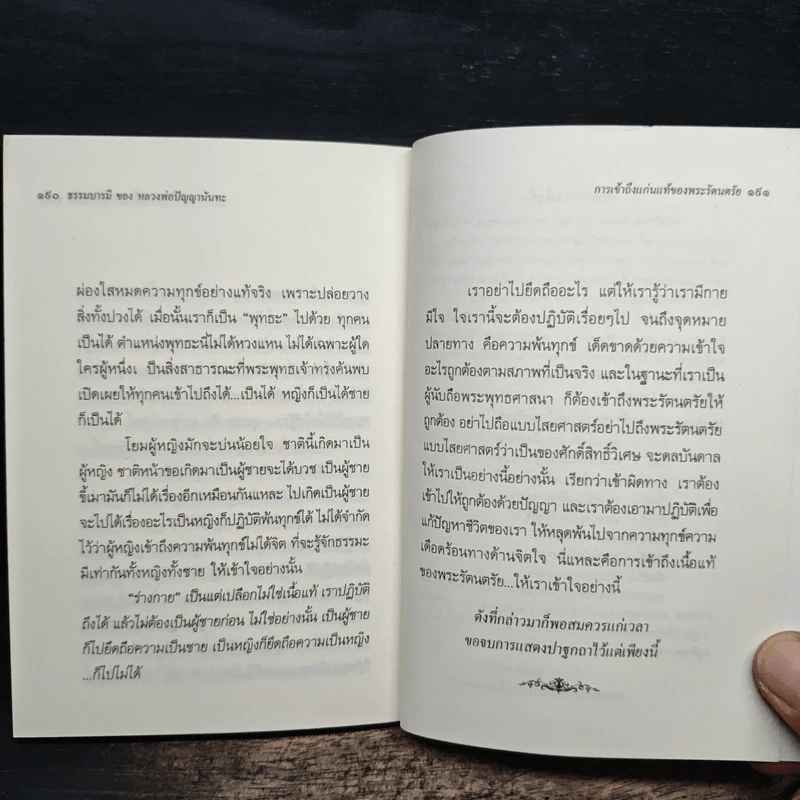 ๑๙๐ ธรรมบารมี ของ หลวงพ่อปัญญานันทะ
ผ่องใสหมดความทุกข์อย่างแท้จริง เพราะปล่อยวาง
สิ่งทั้งปวงได้ เมื่อนั้นเราก็เป็น “พุทธะ” ไปด้วย ทุกคน
เป็นได้ ตำแหน่งพุทธะนี่ไม่ได้หวงแหน ไม่ได้เฉพาะผู้ใด
ใครผู้หนึ่งเ ป็นสิ่งสาธารณะที่พระพุทธเจ้าทรงค้นพบ
เปิดเผยให้ทุกคนเข้าไปถึงได้...เป็นได้ หญิงก็เป็นได้ชาย
ก็เป็นได้
โยมผู้หญิงมักจะบ่นน้อยใจ ชาตินี้เกิดมาเป็น
ผู้หญิง ชาติหน้าขอเกิดมาเป็นผู้ชายจะได้บวช เป็นผู้ชาย
ขี้เมามันก็ไม่ได้เรื่องอีกเหมือนกันแหละ ไปเกิดเป็นผู้ชาย
จะไปได้เรื่องอะไรเป็นหญิงก็ปฏิบัติพ้นทุกข์ได้ ไม่ได้จำกัด
ไว้ว่าผู้หญิงเข้าถึงความพ้นทุกข์ไม่ได้จิต ที่จะรู้จักธรรมะ
มีเท่ากันทั้งหญิงทั้งชาย ให้เข้าใจอย่างนั้น
“ร่างกาย” เป็นแต่เปลือกไม่ใช่เนื้อแท้ เราปฏิบัติ
ถึงได้ แล้วไม่ต้องเป็นผู้ชายก่อน ไม่ใช่อย่างนั้น เป็นผู้ชาย
ก็ไปยึดถือความเป็นชาย เป็นหญิงก็ยึดถือความเป็นหญิง
...ก็ไปไม่ได้
การเข้าถึงแก่นแท้ของพระรัตนตรัย ๑๙๑
เราอย่าไปยึดถืออะไร แต่ให้เรารู้ว่าเรามีกาย
มีใจ ใจเรานี้จะต้องปฏิบัติเรื่อยๆไป จนถึงจุดหมาย
ปลายทาง คือความพ้นทุกข์ เด็ดขาดด้วยความเข้าใจ
อะไรถูกต้องตามสภาพที่เป็นจริง และในฐานะที่เราเป็น
ผู้นับถือพระพุทธศาสนา ก็ต้องเข้าถึงพระรัตนตรัยให้
ถูกต้อง อย่าไปถือแบบไสยศาสตร์อย่าไปถึงพระรัตนตรัย
แบบไสยศาสตร์ว่าเป็นของศักดิ์สิทธิ์วิเศษ จะดลบันดาล
ให้เราเป็นอย่างนี้อย่างนั้น เรียกว่าเข้าผิดทาง เราต้อง
เข้าไปให้ถูกต้องด้วยปัญญา และเราต้องเอามาปฏิบัติเพื่อ
แก้ปัญหาชีวิตของเรา ให้หลุดพ้นไปจากความทุกข์ความ
เดือดร้อนทางด้านจิตใจ นี่แหละคือการเข้าถึงเนื้อแท้
ของพระรัตนตรัย...ให้เราเข้าใจอย่างนี้
ดังที่กล่าวมาก็พอสมควรแก่เวลา
ขอจบการแสดงปาฐกถาไว้แต่เพียงนี้